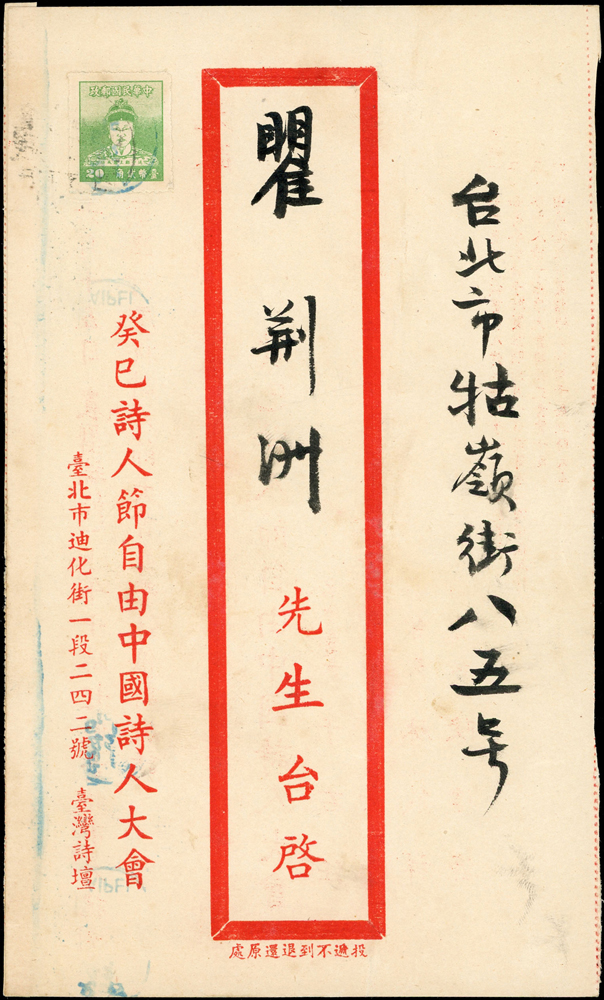 台北市牯嶺街八五号
瞿荆洲先生台啓
投遞不到退還原處
癸巳詩人節自由中國詩人大會
臺北市迪化街一段二四二號 臺灣詩壇
中華民國郵政
20 臺幣貳角